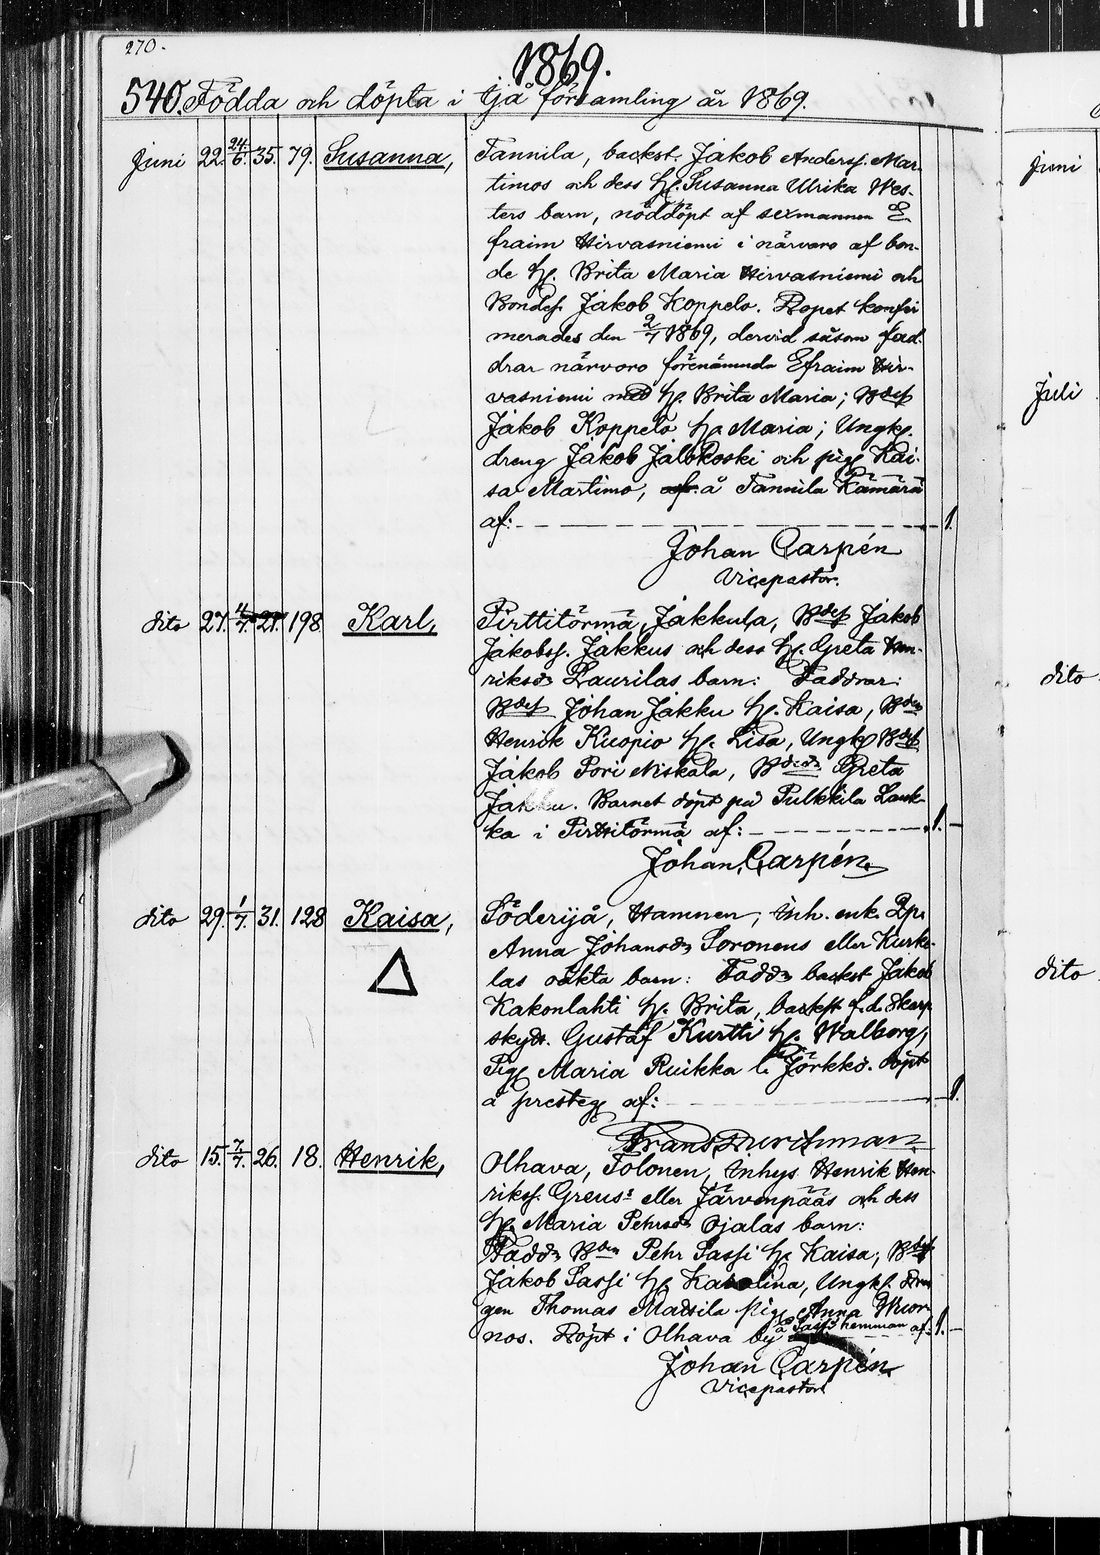 270.
1869.
540. Födda och döpta i Ijå församling år 1869.
Juni 22. 24/6. 35. 79. Susanna, Tannila, backst. Jakob Anderss. Mar-
timos och dess h. Susanna Ulrika Wes-
ters barn, nöddöpt af sexmannen E-
fraim Hirvasniemi i närvaro af bon-
de h. Brita Maria Hirvasniemi och
Bondes. Jakob Koppelo. Dopet konfir
merades den 2/7 1869, dervid såsom fad-
drar närvoro förenämnda Efraim Hir-
vasniemi med h. Brita Maria; Bdes
Jakob Koppelo h. Maria; Ungk.
dreng Jakob Jalokoski och pig. Kai-
sa Martimo, å Tannila Kämärä
af: 1.
Johan Carpén
Vicepastor.
dito 27. 4/7. 21. 198 Karl, Pirttitörmä, Jakkula, Bdes Jakob
Jakobss. Jakkus och dess h. Greta Hen-
riksdr Laurilas barn: Faddrar:
Bdes Johan Jakku h. Kaisa, Bden
Henrik Kuopio h. Lisa, Ungk. Bdes
Jakob Pori Niskala, Greta
Jakku. Barnet döpt på Pulkkila Lauk-
ka i Pirttitörmä af: 1.
Johan Carpén
dito 29. 1/7. 31. 128 Kaisa, Söderijå, Hamnen, Inh. enk.
Anna Johansdr Soronens eller Kurke-
las oäkta barn: Faddr backst Jakob
Kakonlahti h. Brita, backst f.d. Skarp
skytt. Gustaf Kurtti h. Walborg,
Pig. Maria Ruikka Jörkkö. döpt
å presteg. af: 1.
Frans Durchman
dito 15. 7/7. 26. 18. Henrik, Olhava, Tolonen, Inhys Henrik Hen-
rikss. Greus eller Järvenpääs och dess
h. Maria Pehrsdr Ojalas barn:
Faddr Bden Pehr Sassi h. Kaisa, Bdes
Jakob Sassi h. Karolina, Ungk. dren
gen Thomas Matsila pig. Anna Wuor-
nos. Döpt i Olhava by å Sassi hemman af: 1.
Johan Carpén
Vicepastor
Juni
Juli
dito
dito